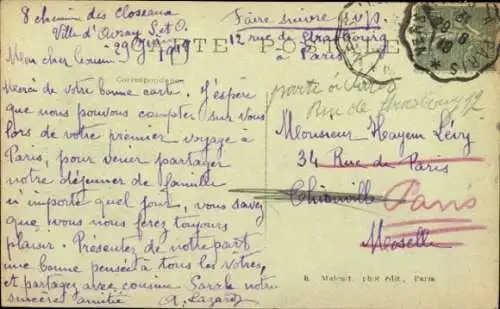 8 chemin des Closeaux
Ville d'Avray S.et O.
29 1919
Mon cher Cousin
Merci de votre bonne carte. J'espère
que nous pouvons compter sur vous
lors de votre premier voyage à
Paris, pour venir partager
notre déjeuner de famille
n'importe quel jour, vous savez
que vous nous ferez toujours
plaisir. Présentez de notre part
une bonne pensée à tous les vôtres,
et partagez avec cousine Sarah notre
sincère amitié
Faire suivre s.v.p.
12 rue de Strasbourg
à Paris
CARTE POSTALE
Correspondance
rue de Strasbourg 12
Monsieur Hayem Lévy
34 Rue de Paris
Thionville Paris
Moselle
phot édit., Paris